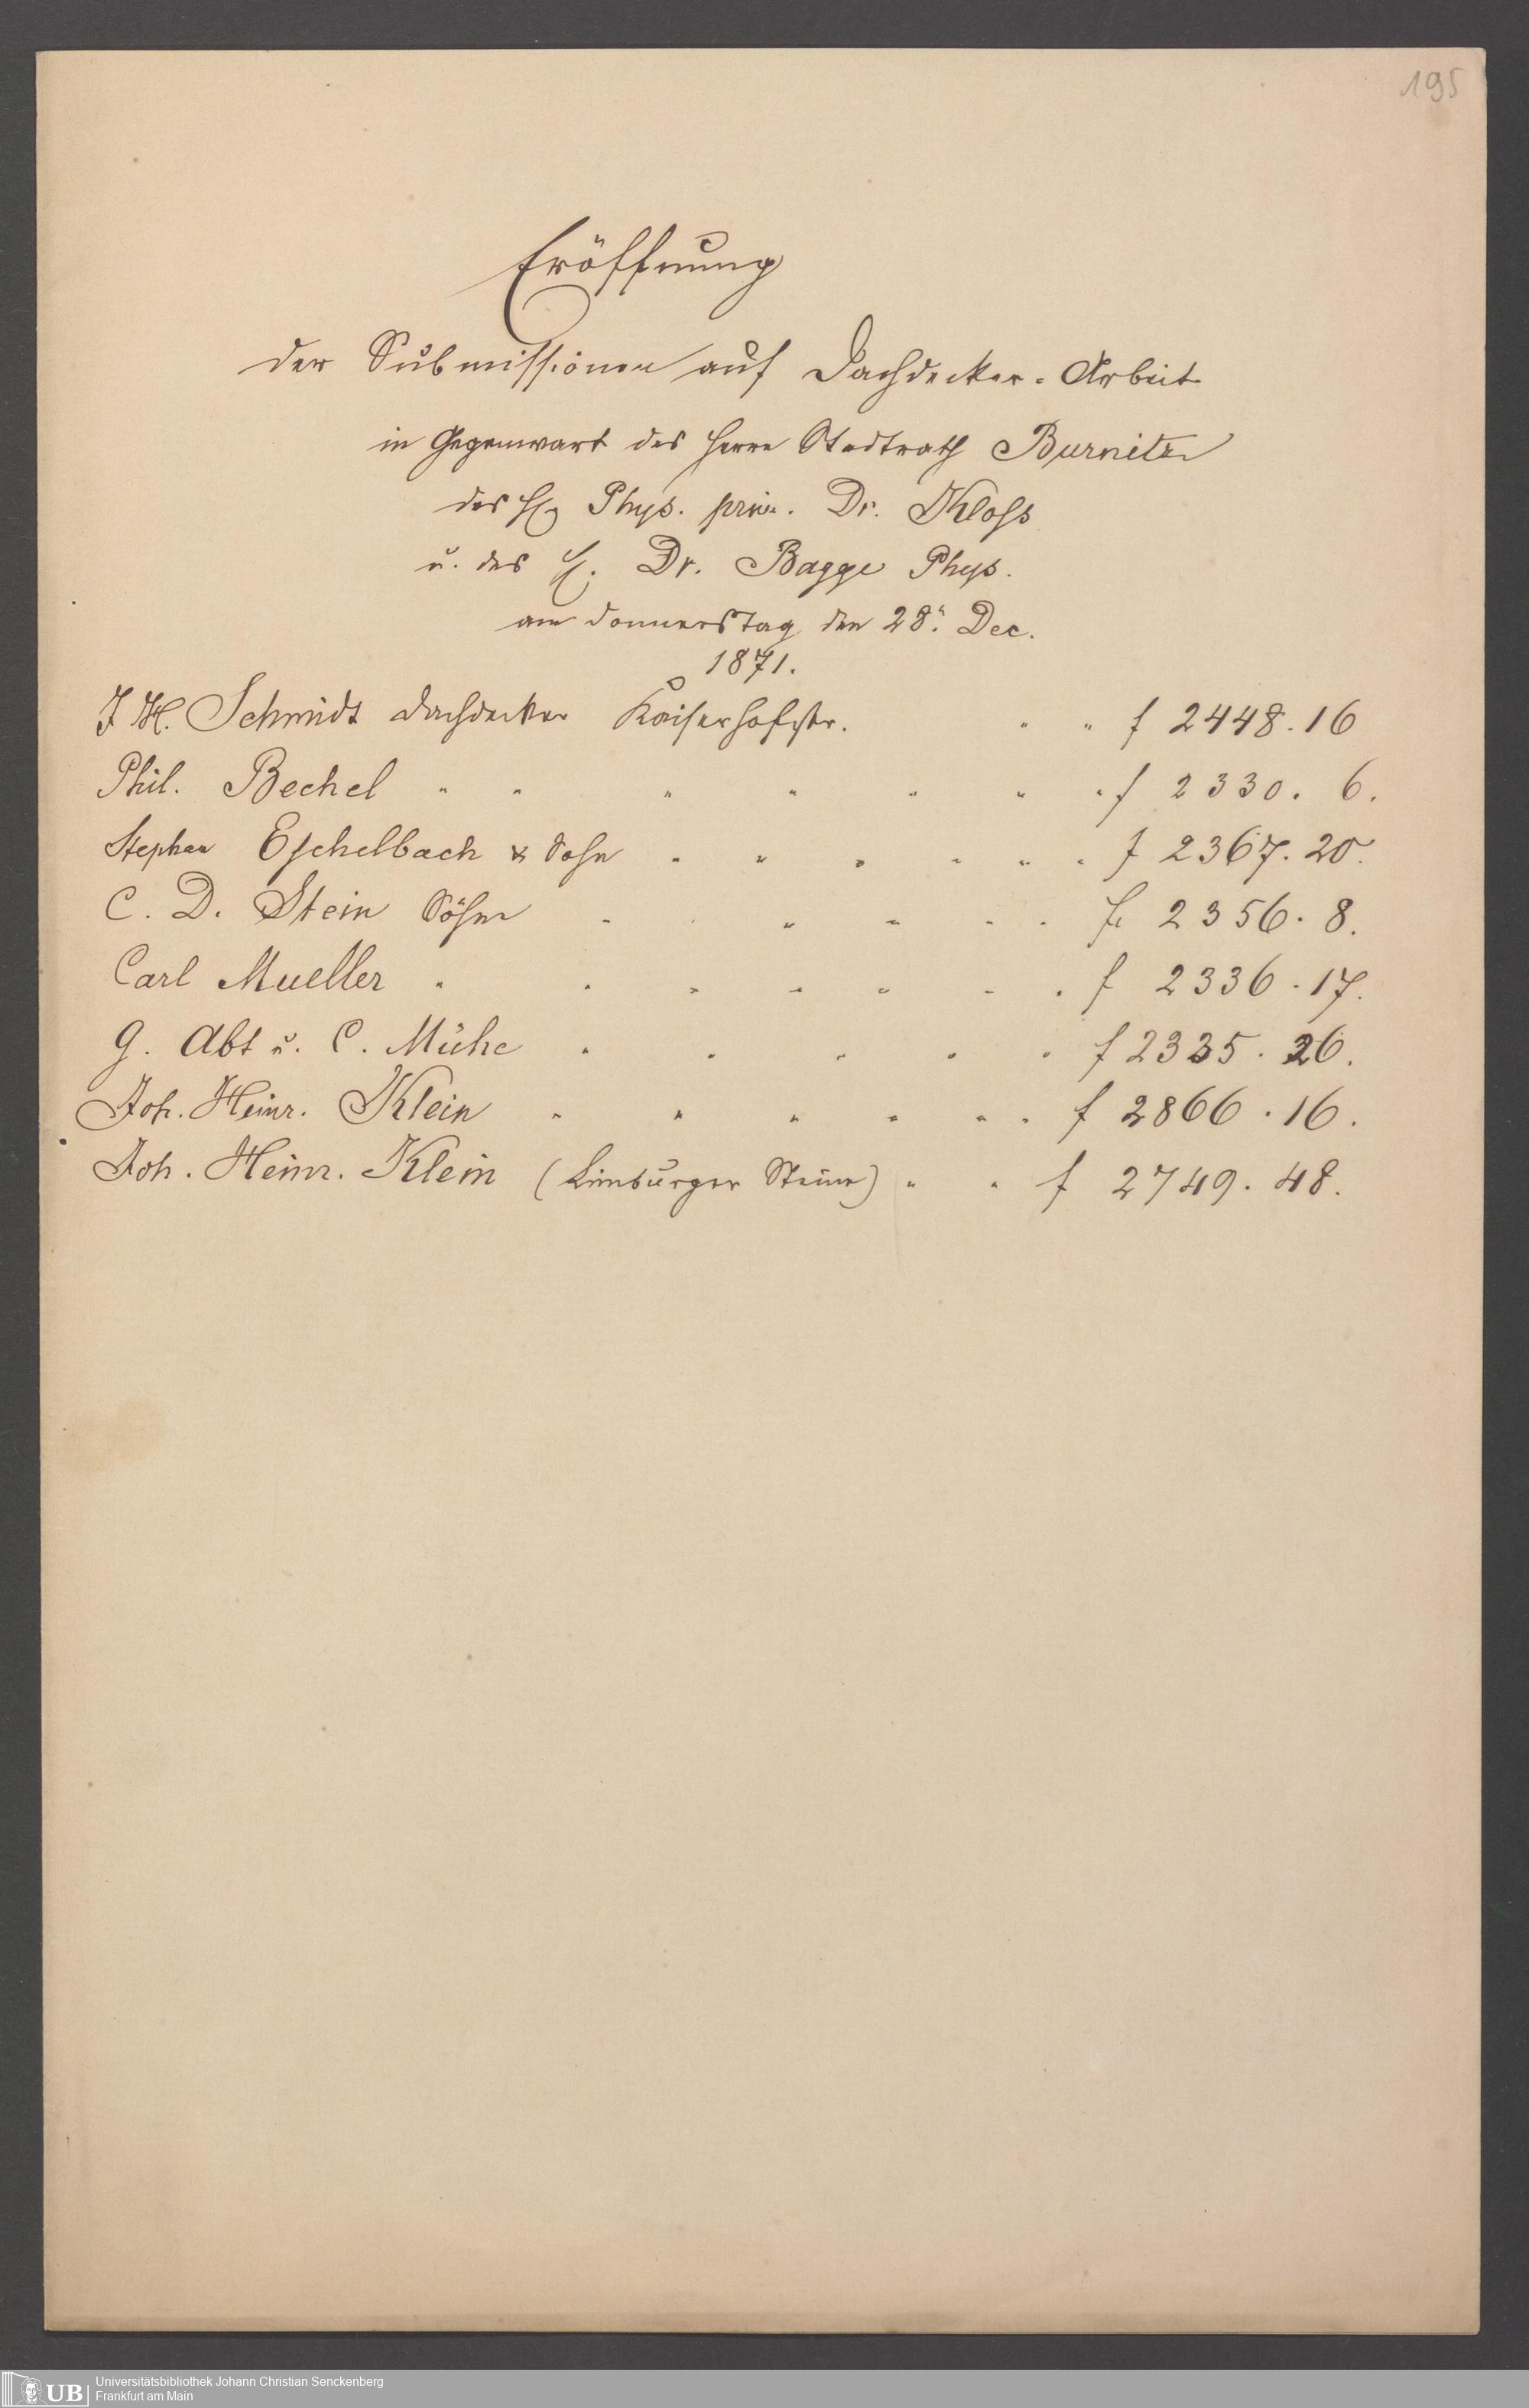 195
Eröffnung
der Submissionen auf Dachdecker-Arbeit
in Gegenwart des Herrn Stadtrath Burnitz
des H. Phys. prim. Dr. Kloss
u. des H. Dr. Bagge Phys.
am Donnerstag den 28. Dec.
1871.
J. H. Schmidt Dachdecker Kaiserhofstr. " " f 2448.16
Phil. Bechel " " " " " " " f 2330. 6.
Stephan Eschelbach & Sohn " " " " " " f 2367.20.
C. D. Stein Söhne " " " " " " f 2356. 8.
Carl Mueller " " " " " " " f 2336.17.
G. Abt u. C. Mühe " " " " " f 2335.26.
Joh. Heinr. Klein " " " " " " f 2866.16.
Joh. Heinr. Klein (Limburger Steine) " " f 2749.48.
UB Universitätsbibliothek Johann Christian Senckenberg
Frankfurt am Main